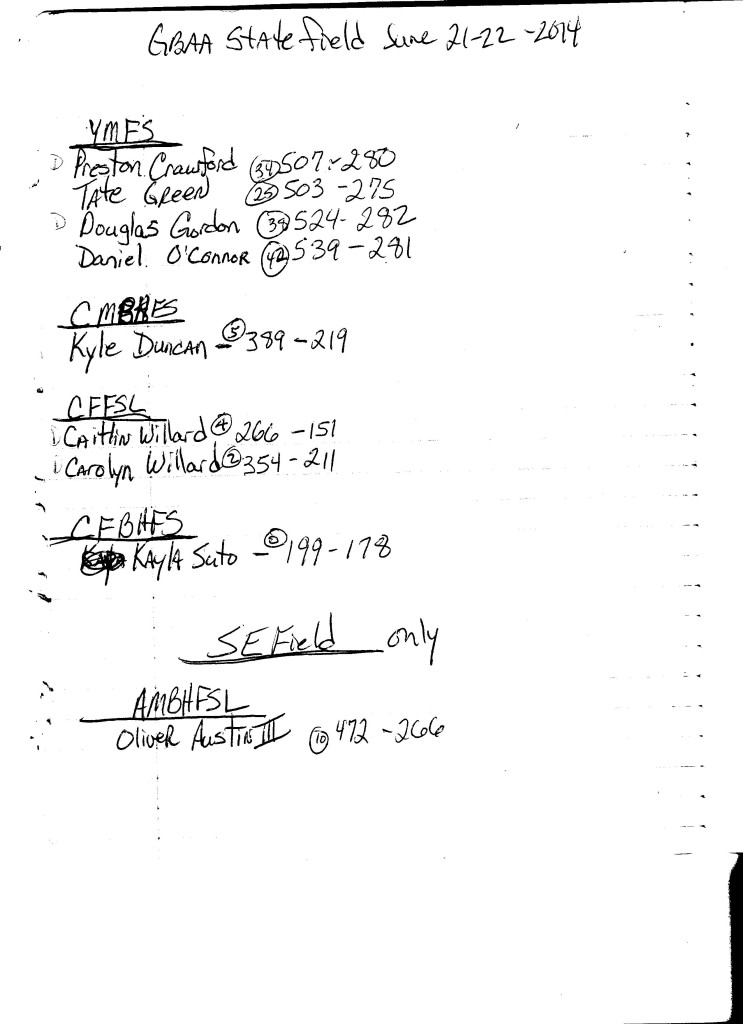 GBAA State Field June 21-22-2014
YMFS
D Preston Crawford (34) 507 - 280
Tate Green (25) 503 - 275
D Douglas Gordon (38) 524 - 282
Daniel O'Connor (42) 539 - 281
Kyle Duncan - (5) 389 - 219
CFFSL
Caitlin Willard (4) 266 - 151
Carolyn Willard (2) 354 - 211
CFBHFS
Kayla Suto - (0) 199 - 178
SE Field only
AMBHFSL
Oliver Austin III (10) 472 - 266